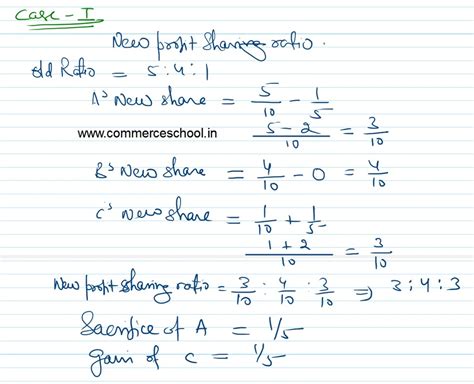 Case - I
New profit sharing ratio.
Old Ratio = 5:4:1
A's New share = 5/10 - 1/5
www.commerceschool.in
5-2/10 = 3/10
B's New share = 4/10 - 0 = 4/10
C's New share = 1/10 + 1/5
1+2/10 = 3/10
New profit sharing ratio = 3/10 : 4/10 : 3/10 ⇒ 3:4:3
Sacrifice of A = 1/5
gain of C = 1/5